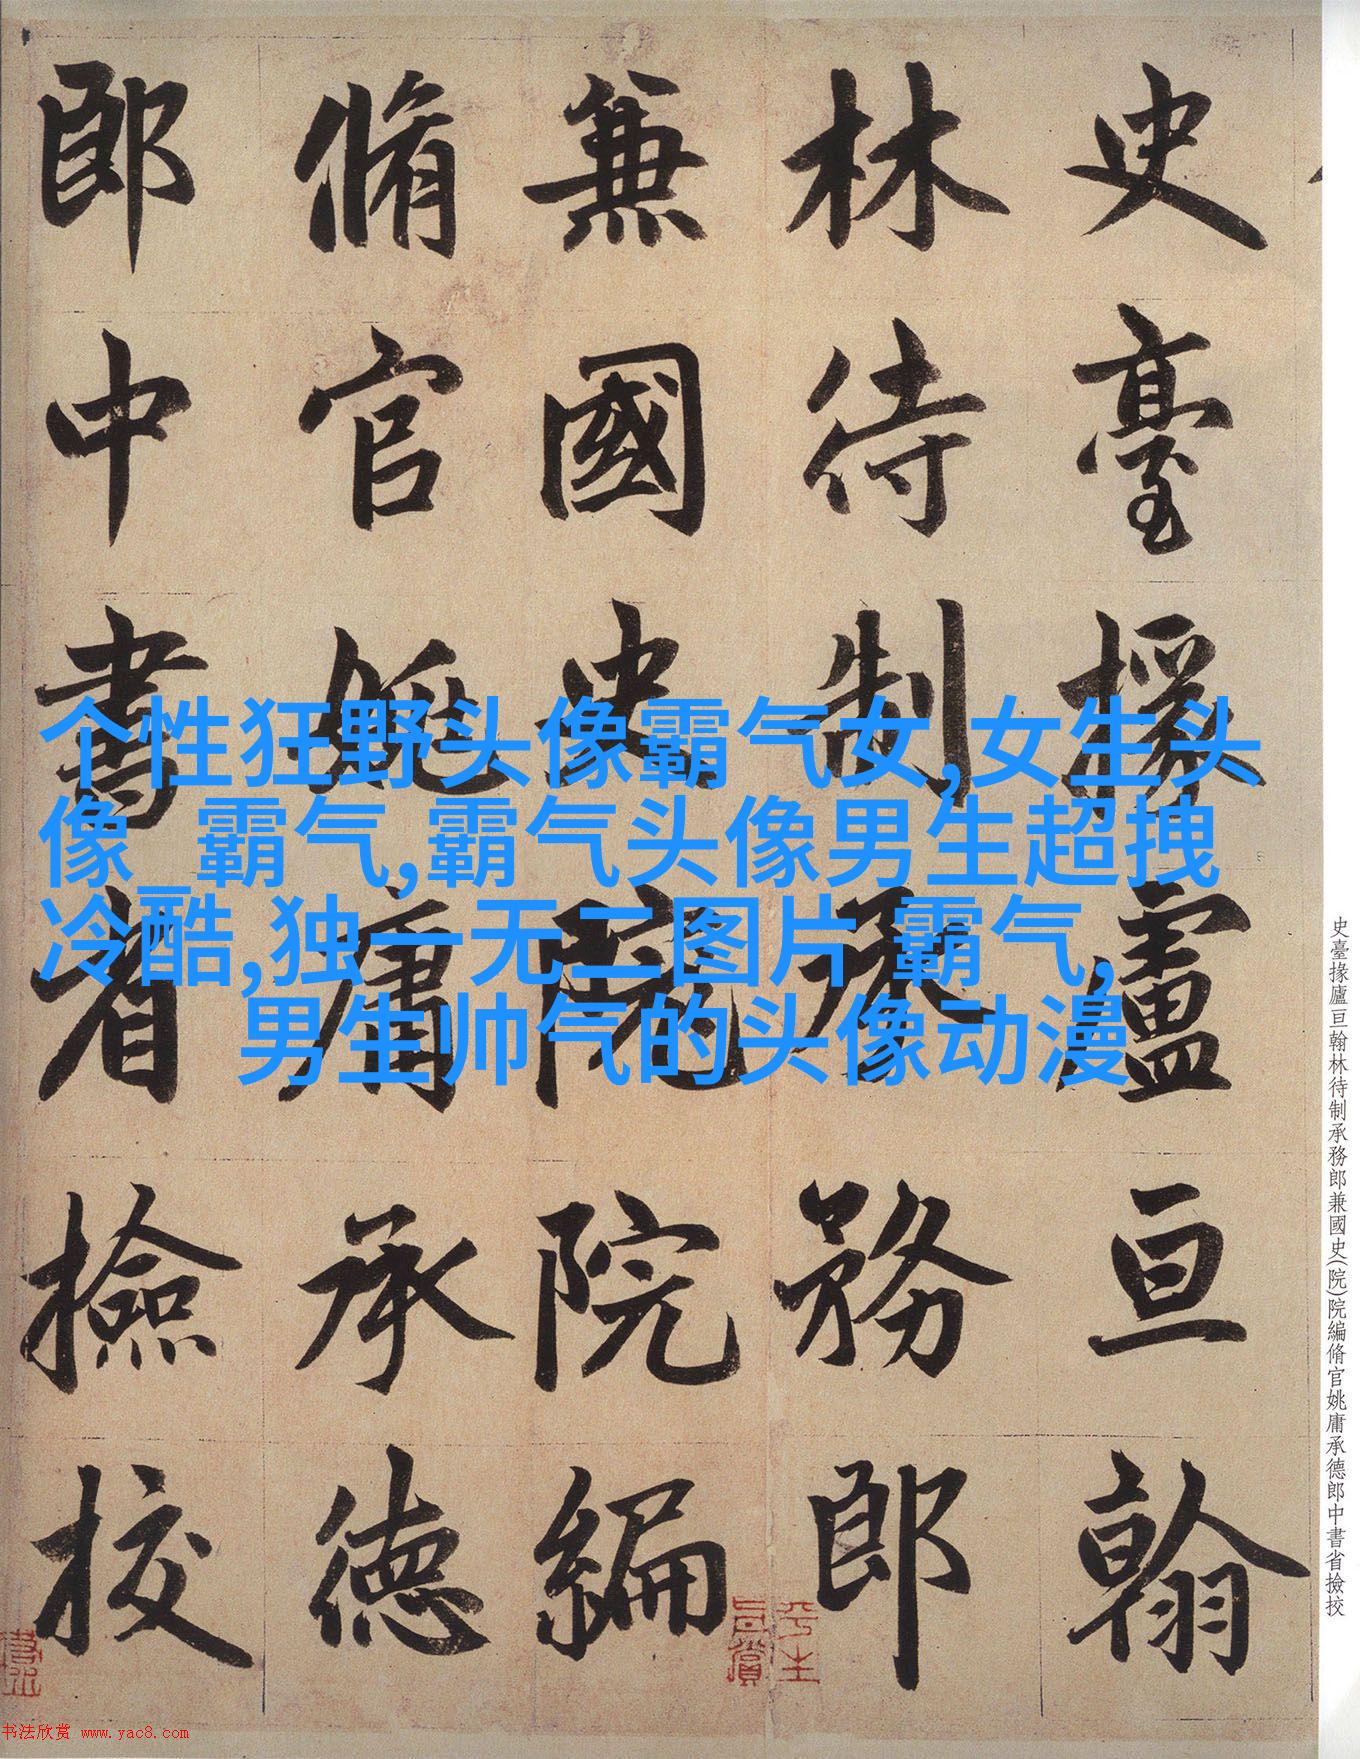 史臺掾盧亘翰
林待制承務郎
兼國史院院編
脩官姚庸承德
郎中書省撿挍
个性狂野头像霸气女,女生头
像 霸气,霸气头像男生超拽
冷酷,独一无二图片 霸气,
男生帅气的头像动漫
史臺掾廬亘翰林待制承務郎兼國史(院)院編脩官姚庸承德郎中書省撿挍
书法欣赏 www.yac8.com